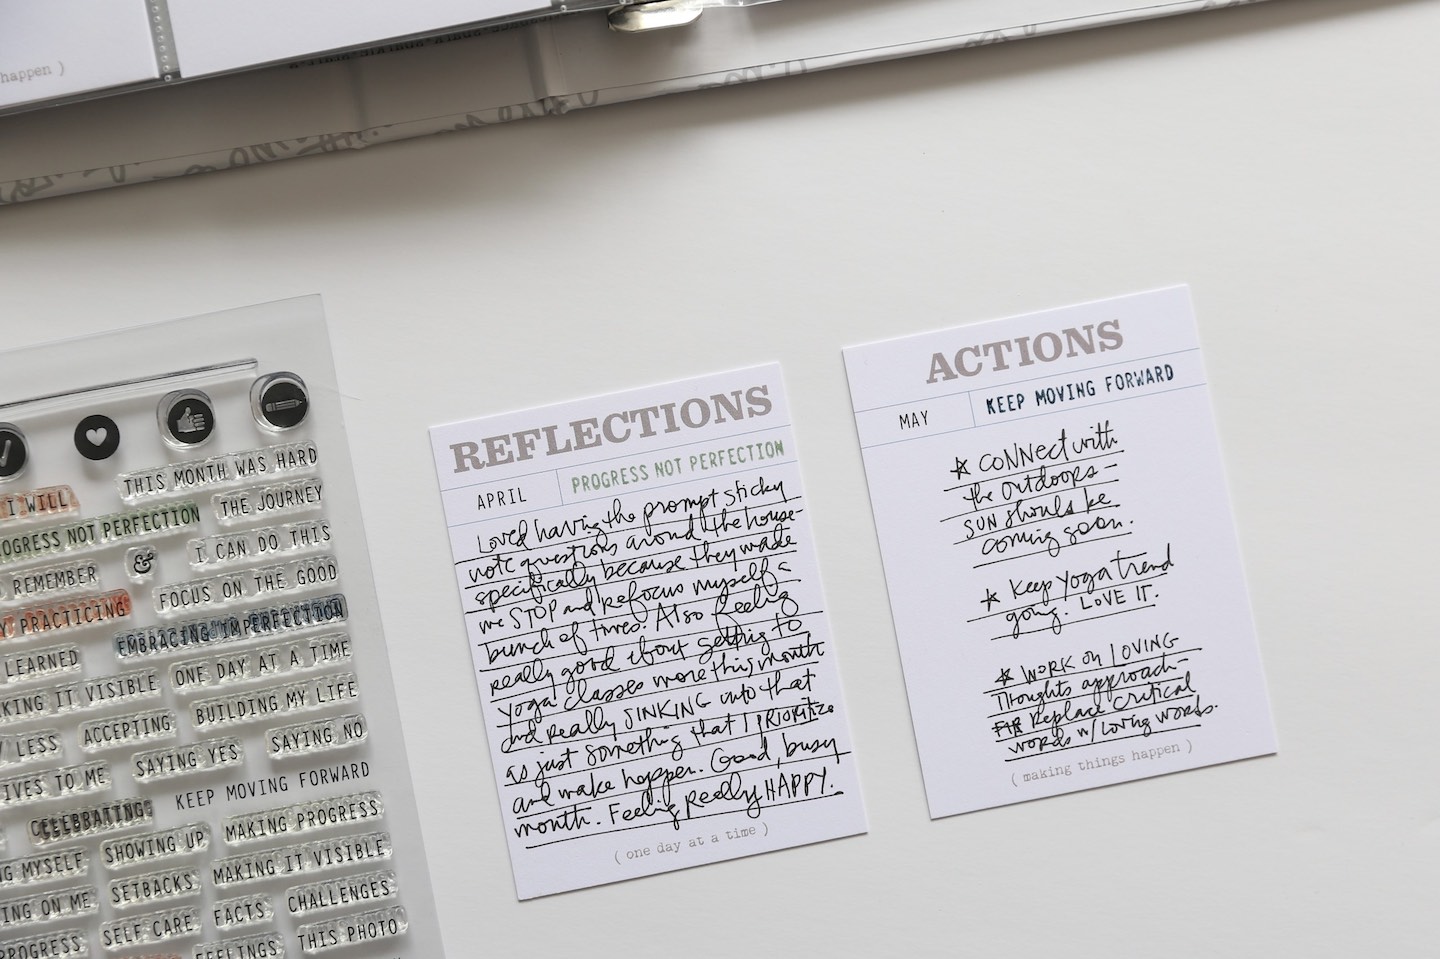 happen )
I WILL
THIS MONTH WAS HARD
OGRESS NOT PERFECTION
THE JOURNEY
REMEMBER
&
I CAN DO THIS
PRACTICING
FOCUS ON THE GOOD
LEARNED
EMBRACING IMPERFECTION
KING IT VISIBLE
ONE DAY AT A TIME
LESS
ACCEPTING
BUILDING MY LIFE
IVES TO ME
SAYING YES
SAYING NO
CELEBRATING
KEEP MOVING FORWARD
G MYSELF
SHOWING UP
MAKING PROGRESS
ING ON ME
SETBACKS
MAKING IT VISIBLE
PROGRESS
SELF CARE
FACTS
CHALLENGES
FEELINGS
THIS PHOTO
REFLECTIONS
APRIL
PROGRESS NOT PERFECTION
Loved having the prompt sticky
note questions around the house-
specifically because they made
me STOP and Refocus myself a
bunch of times. Also feeling
really good about getting to
yoga classes more this month
and really SINKING into that
as just something that I PRIORITIZE
and make happen. Good, busy
month. Feeling Really HAPPY.
( one day at a time )
ACTIONS
MAY
KEEP MOVING FORWARD
☆ CONNect with
the outdoors -
SUN should be
coming soon.
☆ Keep yoga trend
going. LOVE IT.
☆ WORK on LOVING
Thoughts approach-
Replace critical
words w/ loving words.
( making things happen )